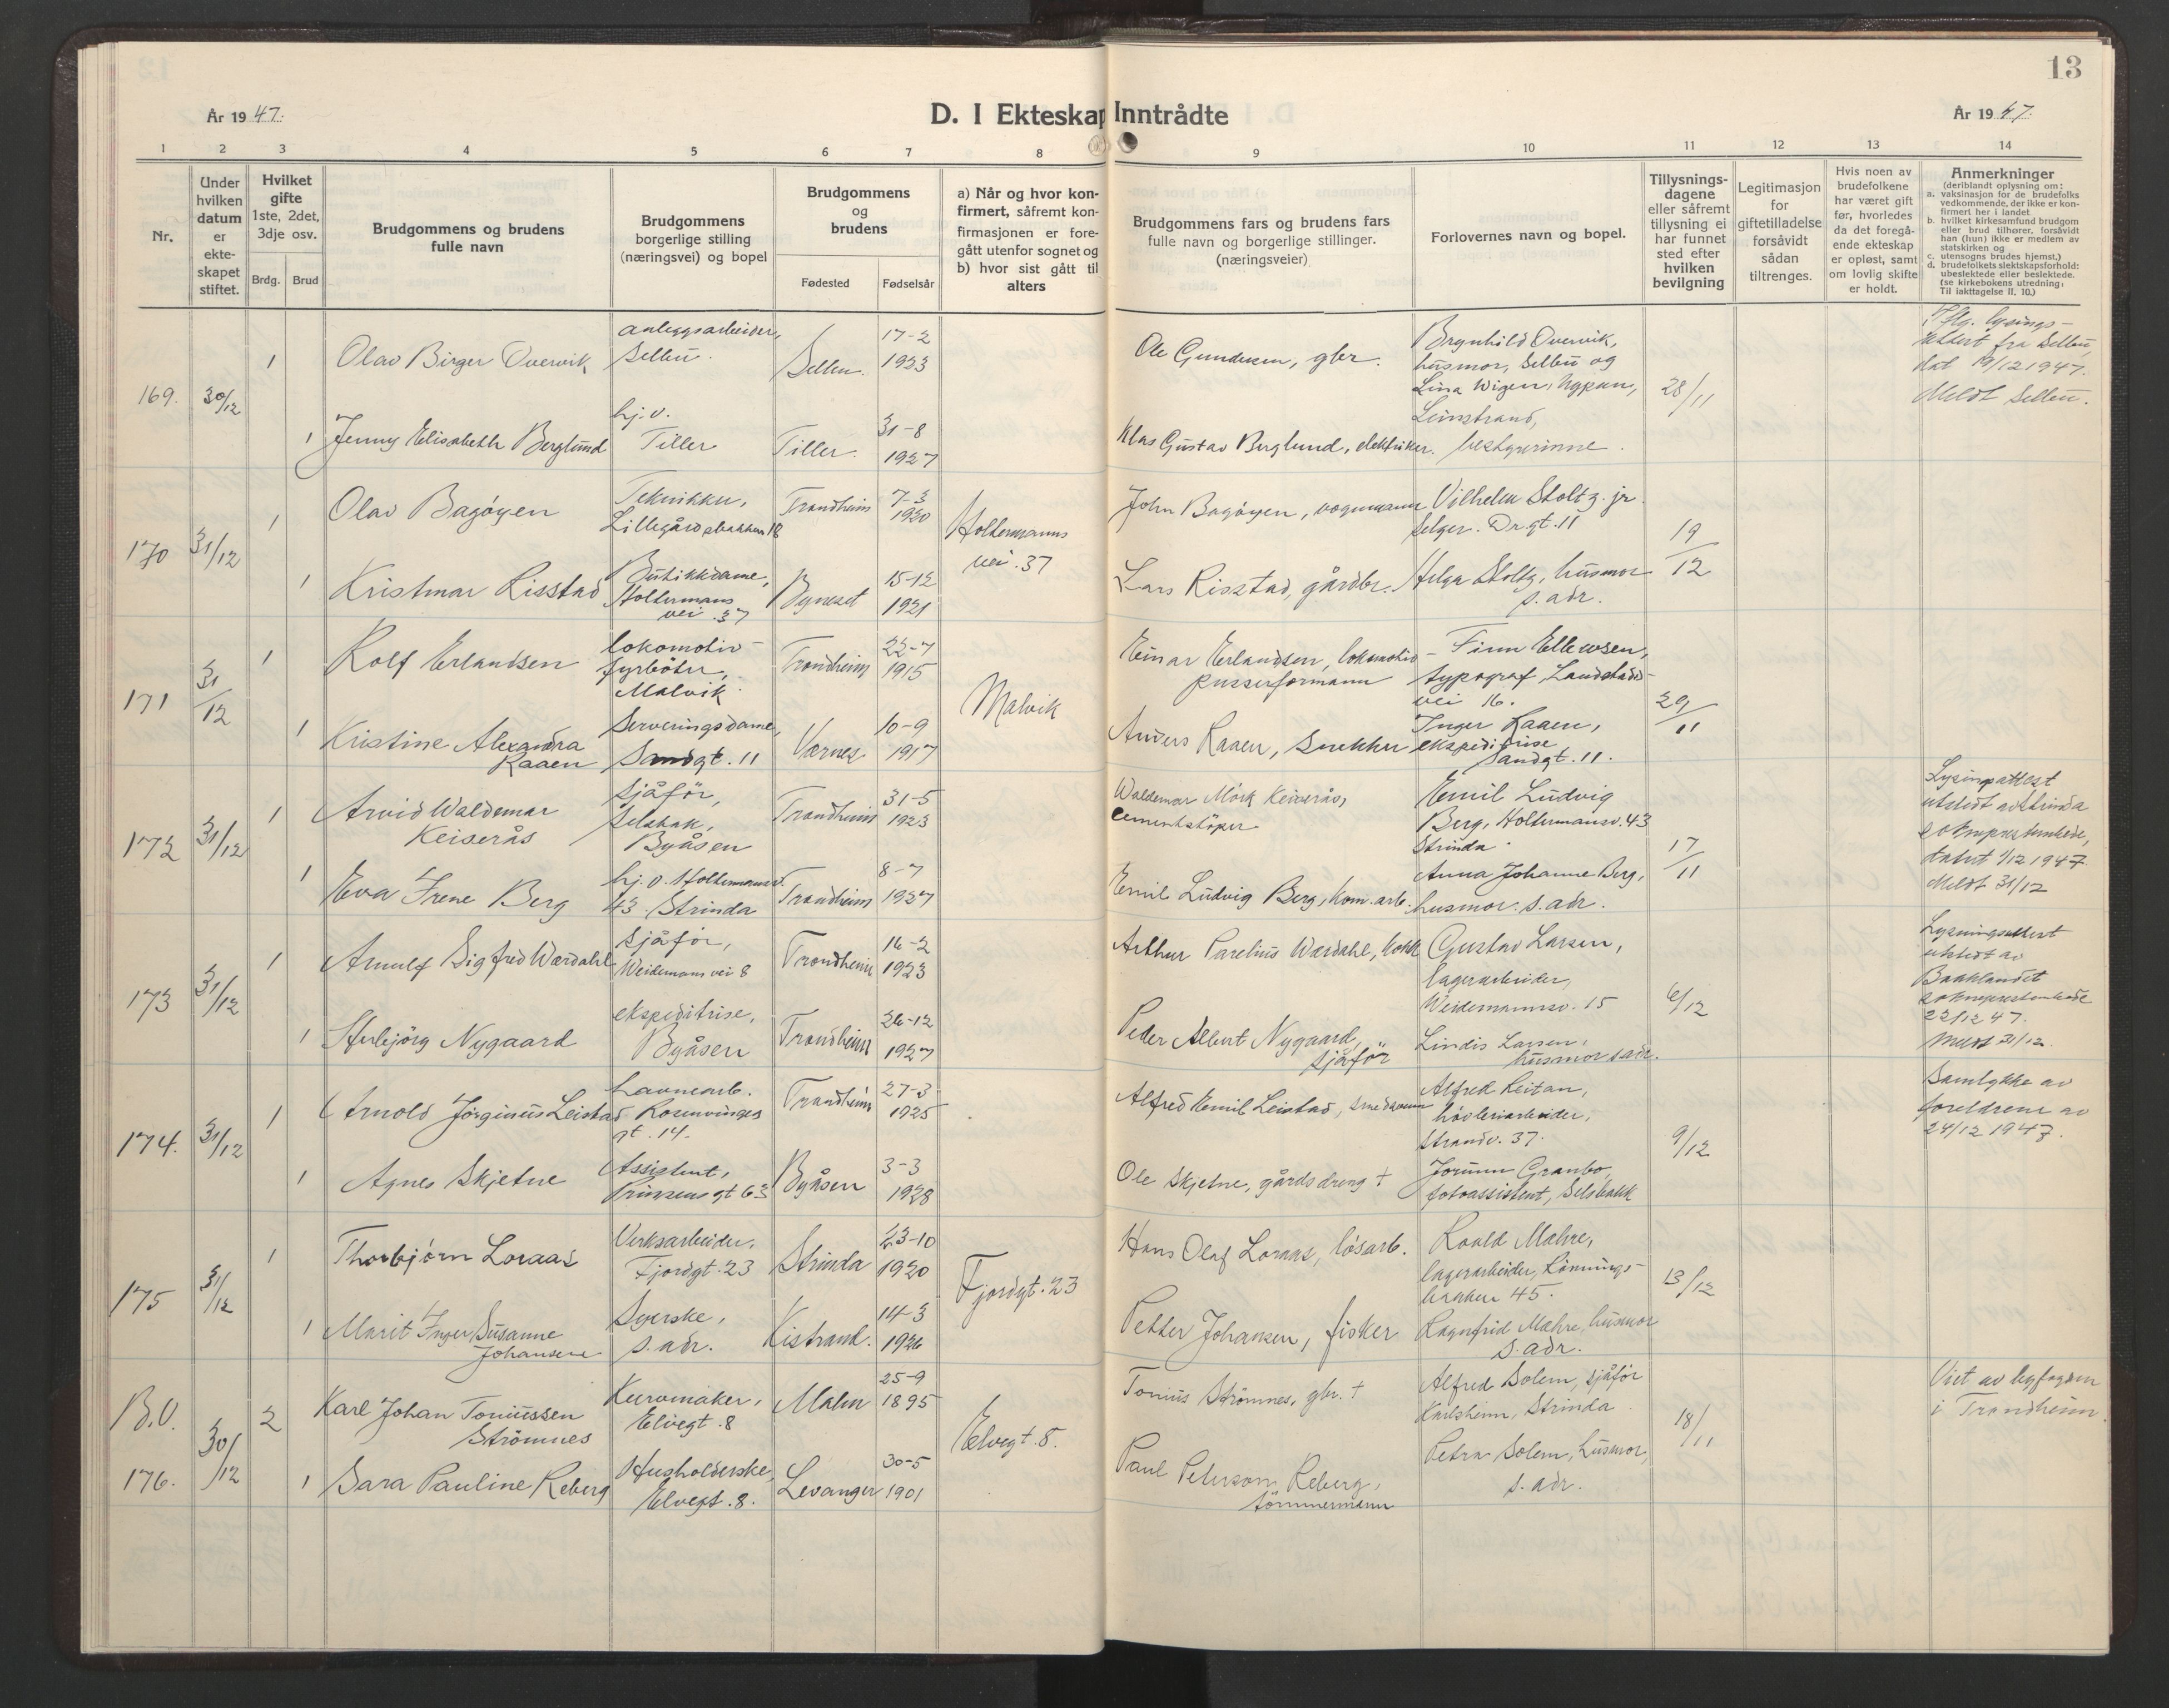 13
År 1947.
D. I Ekteskap Inntrådte
År 1947.
1 2 3 4 5 6 7 8 9 10 11 12 13 14
Nr.
Under hvilken datum er ekte-skapet stiftet.
Hvilket gifte 1ste, 2det, 3dje osv.
Brdg. Brud
Brudgommens og brudens fulle navn
Brudgommens borgerlige stilling (næringsvei) og bopel
Brudgommens og brudens
Fødested Fødselsår
a) Når og hvor kon-
firmert, såfremt kon-
firmasjonen er fore-
gått utenfor sognet og
b) hvor sist gått til
alters
Brudgommens fars og brudens fars
fulle navn og borgerlige stillinger.
(næringsveier)
Forlovernes navn og bopel.
Tillysnings-
dagene
eller såfremt
tillysning ei
har funnet
sted efter
hvilken
bevilgning
Legitimasjon
for
giftetilladelse
forsåvidt
sådan
tiltrenges.
Hvis noen av
brudefolkene
har været gift
før, hvorledes
da det foregå-
ende ekteskap
er opløst, samt
om lovlig skifte
er holdt.
Anmerkninger
(deriblandt oplysning om:
a. vaksinasjon for de brudefolks
vedkommende, der ikke er kon-
firmert her i landet
b. hvilket kirkesamfund brudgom
eller brud tilhører, forsåvidt
han (hun) ikke er medlem av
statskirken og
c. utensogns brudes hjemst.)
d. brudefolkets slektskapsforhold:
ubeslektede eller beslektede.
(se kirkebokens utredning:
Til iakttagelse II. 10.)
169. 30/12
1 Olav Birger Overvik
anleggsarbeider,
Selbu.
Selbu. 17-2 1923
Ole Gundersen, gbr.
Brynhild Overvik,
husmor, Selbu og
Lina Wigen, Nypan,
Leinstrand,
bestyrerinne.
28/11
Iflg. lysings-
attest fra Selbu
dat 19/12 1947.
Meldt Selbu.
1 Jenny Elisabeth Berglund
hj. v.
Tiller
Tiller. 31-8 1927
Klas Gustav Berglund, elektriker.
170 31/12
1 Olav Bagøyen
Tekniker,
Lillegårdsbakken 18
Trondheim 7-3 1920
Holtermanns
vei. 37
John Bagøyen, vognmann
Vilhelm Stoltz. jr.
selger. Dr.gt. 11
19/12
1 Kristmar Risstad
Butikkdame,
Holtermans
vei 37
Byneset 15-12 1921
Lars Risstad, gårdbr.
Helga Stoltz, husmor
s. adr.
171 31/12
1 Rolf Erlandsen
lokomotiv-
fyrbøter,
Malvik.
Trondheim 22-7 1915
Malvik
Einar Erlandsen, lokomotiv-
pusserformann
Finn Ellewsen,
typograf, Landstads-
vei 16.
29/11
1 Kristine Alexandra
Raaen
Serveringsdame,
Sandgt. 11
Værnes 10-9 1917
Anders Raaen, snekker
Inger Raaen,
ekspeditrise
Sandgt. 11.
172 31/12
1 Arvid Waldemar
Keiserås
sjåfør,
Selsbak,
Byåsen
Trondheim 31-5 1923
Waldemar Mörk Keiserås,
cementstøper
Emil Ludvig
Berg, Holtermansv. 43
Strinda.
17/11
Lysingsattest
utstedt av Strinda
sokneprestembede,
datert 1/12 1947.
Meldt 31/12
1 Eva Irene Berg
hj. v. Holtermansv.
43. Strinda
Trondheim 8-7 1927
Emil Ludvig Berg, kom. arb.
Anna Johanne Berg,
husmor. s. adr.
173 31/12
1 Arnulf Sigfred Wærdahl
sjåfør,
Weidemans vei 8
Trondheim 16-2 1923
Arthur Parelius Wærdahl, kokk
Gustav Larsen,
lagerarbeider,
Weidemannsv. 15
6/12
Lysningsattest
utstedt av
Baklandet
sokneprestembede
22/12 47.
Meldt 31/12.
1 Herbjörg Nygaard
ekspeditrise,
Byåsen
Trondheim 26-12 1927
Peder Albert Nygaard,
sjåfør
Lindis Larsen,
husmor s adr.
174. 31/12
1 Arnold Jörginius Leistad
Havnearb.
Rosenvinges
gt. 14.
Trondheim 27-3 1925
Alfred Emil Leistad, smedsvenn
Alfred Reitan,
høvleriarbeider,
Strandv. 37.
9/12
Samtykke av
foreldrene av
24/12 1947.
1 Agnes Skjetne
Assistent,
Prinsens gt 63
Byåsen 3-3 1928
Ole Skjetne, gårdsdreng +
Jorunn Granbo,
fotoassistent, Selsbakk
175 31/12
1 Thorbjørn Loraas
Verksarbeider,
Fjordgt. 23
Strinda 23-10 1920
Fjordgt. 23
Hans Olaf Loraas, løsarb.
Roald Mahre,
lagerarbeider, Rønnings-
bakken 45.
13/12
1 Marit Inger Susanne
Johansen
Syerske,
s. adr.
Kistrand. 14-3 1926
Petter Johansen, fisker
Ragnfrid Mahre, husmor
s. adr.
B.V.
176. 30/12
2 Karl Johan Toniussen
Strömnes
Kurvmaker,
Elvegt. 8
Malm 25-9 1895
Elvegt. 8.
Tonius Strömnes, gbr. +
Alfred Solem, sjåfør
Karlsheim, Strinda.
18/11
Viet av byfogden
i Trondheim.
1 Sara Pauline Reberg
Husholderske,
Elvegt. 8.
Levanger 30-5 1901
Paul Peterson Reberg,
tömmermann
Petra Solem, husmor,
s. adr.